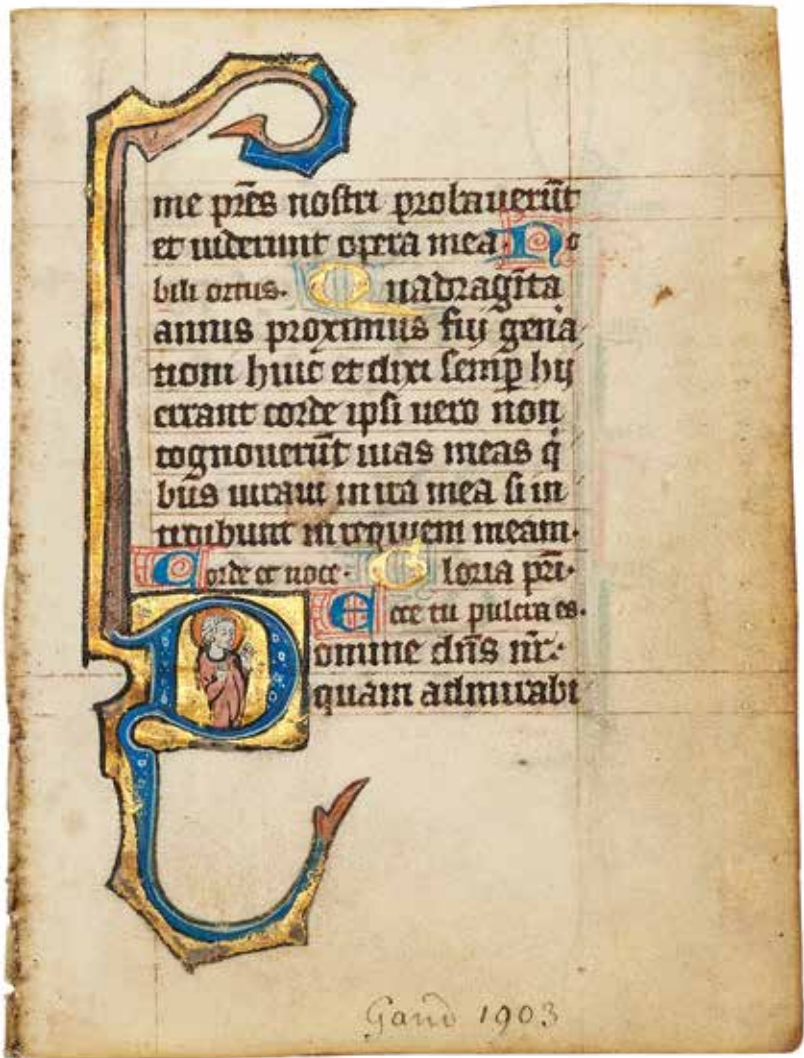 me pr̃es nostri probauerũt
et uiderunt opera mea. No
bili ortus. Quadragĩta
annis proximus fui gen̾a
tioni huic et dixi semp̱ hij
errant corde ipsi uero non
cognouerũt uias meas q̾
bus iuraui in ira mea si in
troibunt in requiem meam.
Corde et uoce. Gloria pr̃i.
Ecce tu pulcra es.
Domine dñs nr̃.
quam admirabi
Gand 1903